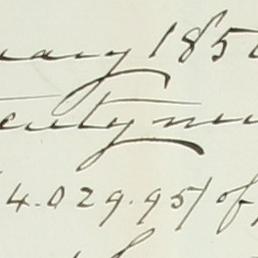 uary 185
Twenty nin
4.029.95) of